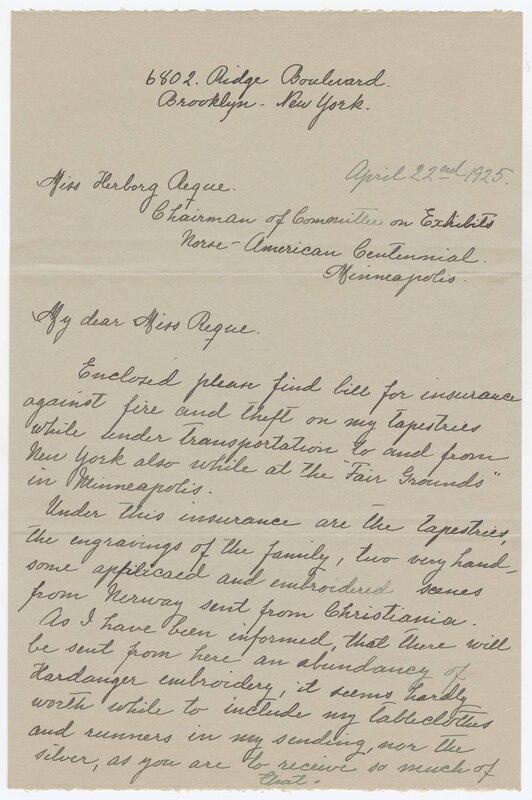 6802. Ridge Boulevard.
Brooklyn - New York.
April 22nd 1925.
Miss Herborg Reque.
Chairman of Committee on Exhibits
Norse-American Centennial.
Minneapolis.
My dear Miss Reque.
Enclosed please find bill for insurance
against fire and theft on my tapestries
while under transportation to and from
New York also while at the "Fair Grounds"
in Minneapolis.
Under this insurance are the tapestries,
the engravings of the family, two very hand-
some applicaed and embroidered scenes
from Norway sent from Christiania.
As I have been informed, that there will
be sent from here an abundancy of
Hardanger embroidery, it seems hardly
worth while to include my tablecloths
and runners in my sending, nor the
silver, as you are to receive so much of
that.